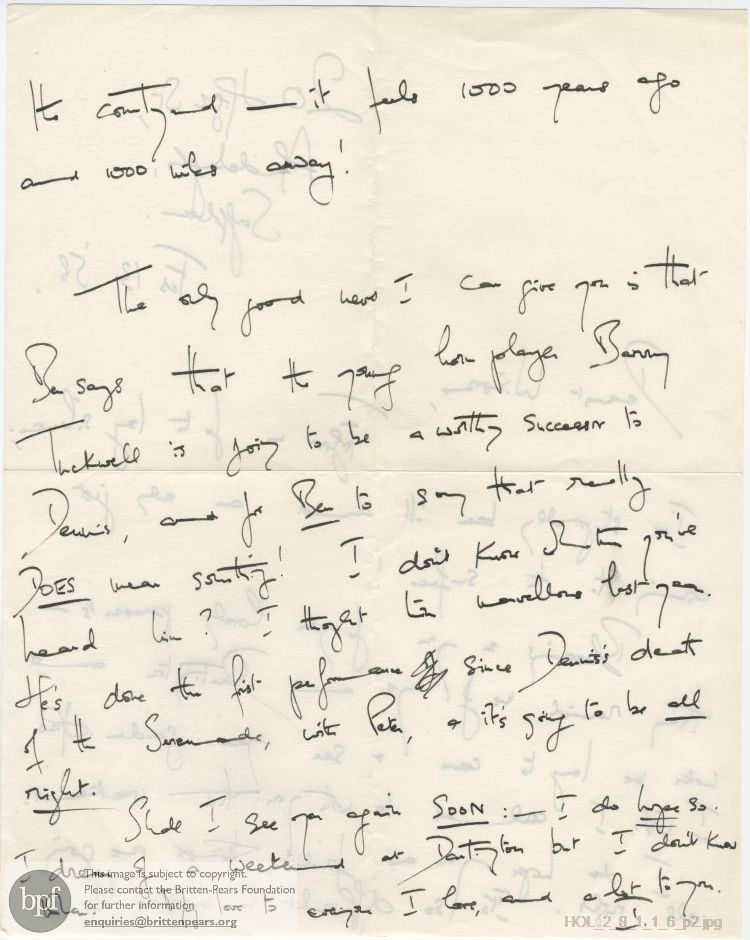 the courtyard — it feels 1000 years ago
and 1000 miles away!
The only good news I can give you is that
Ben says that the young horn player Barry
Tuckwell is going to be a worthy successor to
Dennis, and for Ben to say that really
DOES mean something! I don't know whether you've
heard him? I thought him marvellous last year.
He's done the first performance since Dennis's death
of the Serenade, with Peter, & it's going to be all
right.
Shall I see you again SOON :— I do hope so.
I dream of a weekend at Dartington but I don't know
when. My love to everyone I love, and a lot to you.
I
bpf
This image is subject to copyright.
Please contact the Britten-Pears Foundation
for further information
enquiries@brittenpears.org
HOL_2_8_1.1_6_p2.jpg